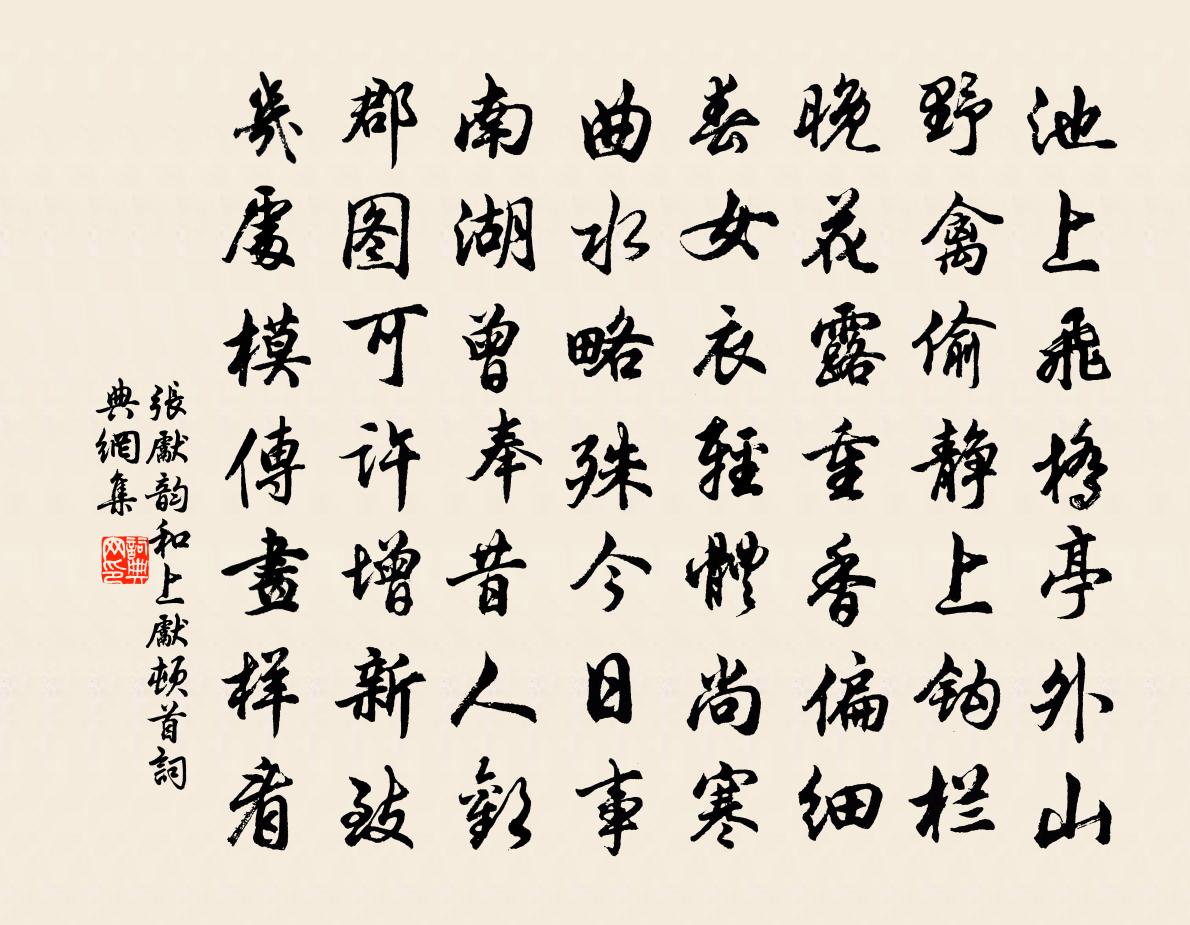 池上飛橋亭外山
野禽偷静上鈎栏
晚花露重香偏细
春女衣輕體尚寒
曲水略殊今日事
南湖曾奉昔人歡
郡图可许增新致
幾處模傳畫样看
張獻韵和上獻頓首詞
典網集
詞典
网印